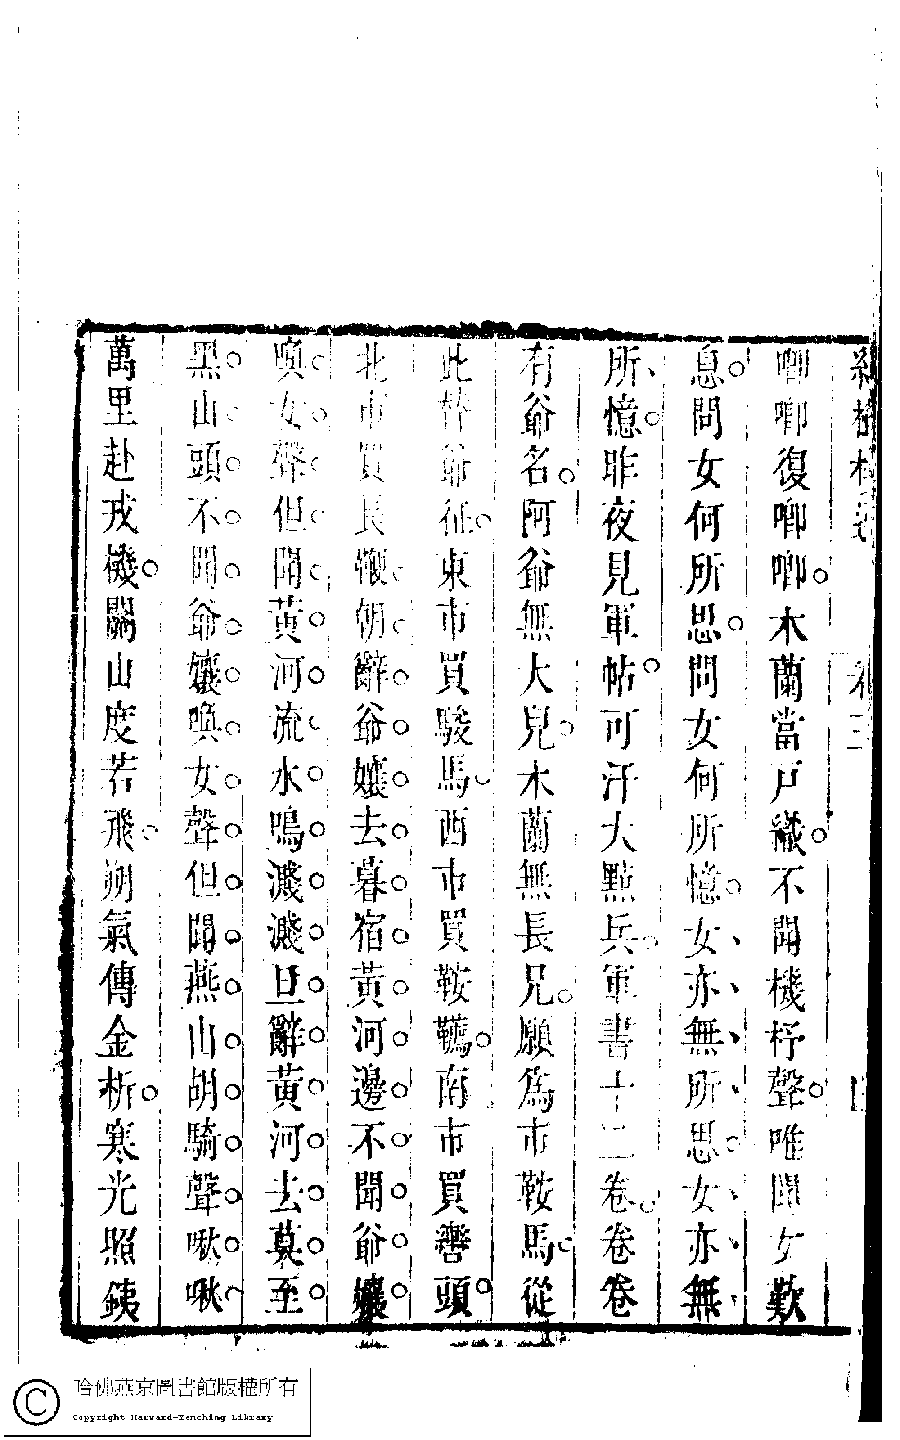 唧唧復唧唧○木蘭當戶織○不聞機杼聲○唯聞女歎
息○問女何所思○問女何所憶○女亦無所思○女亦無
所憶○昨夜見軍帖○可汗大點兵○軍書十二卷○卷卷
有爺名○阿爺無大兒○木蘭無長兄○願爲市鞍馬○從
此替爺征○東市買駿馬○西市買鞍韉○南市買轡頭○
北市買長鞭○朝辭爺孃去○暮宿黃河邊○不聞爺孃
喚女聲○但聞黃河流水鳴濺濺○旦辭黃河去○莫至
黑山頭○不聞爺孃喚女聲○但聞燕山胡騎聲啾啾○
萬里赴戎機○關山度若飛○朔氣傳金柝○寒光照鐵
哈佛燕京圖書館版權所有
Copyright Harvard-Yenching Library